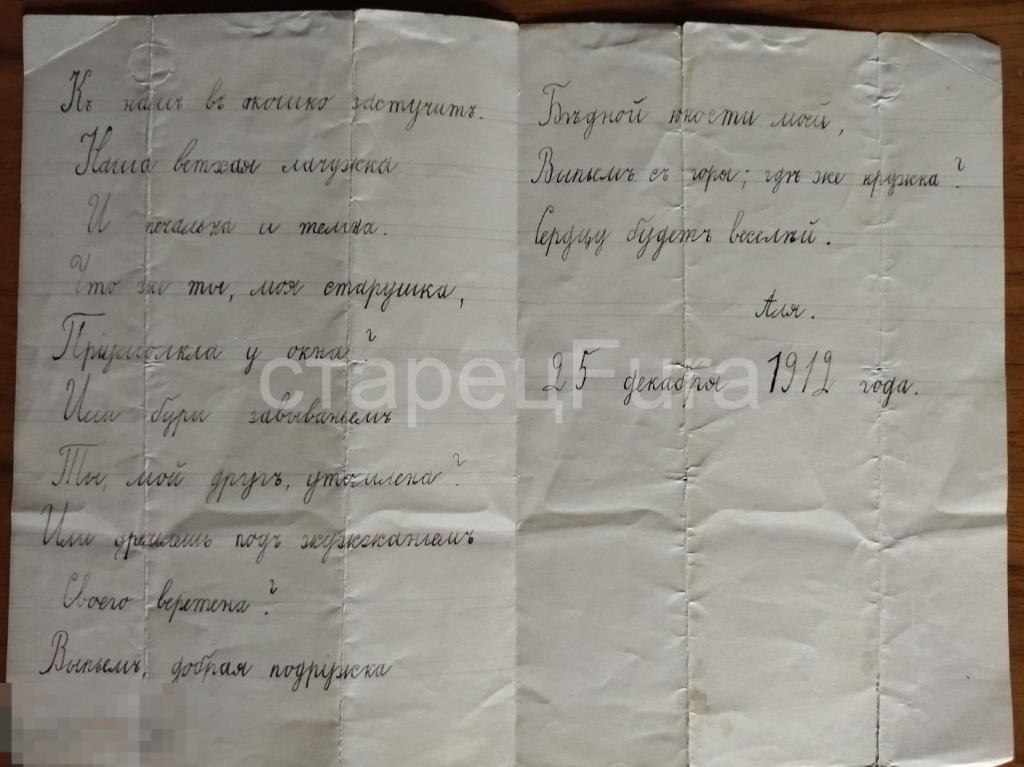 Къ намъ въ окошко застучитъ.
Наша ветхая лачужка
И печальна и темна.
Что же ты, моя старушка,
Пріумолкла у окна?
Или бури завываньемъ
Ты, мой другъ, утомлена?
Или дремлешь подъ жужжаньемъ
Своего веретена?
Выпьемъ, добрая подружка
Бѣдной юности моей,
Выпьемъ съ горя; гдѣ же кружка?
Сердцу будетъ веселѣй.
Аля.
25 декабря 1912 года.
старецFura